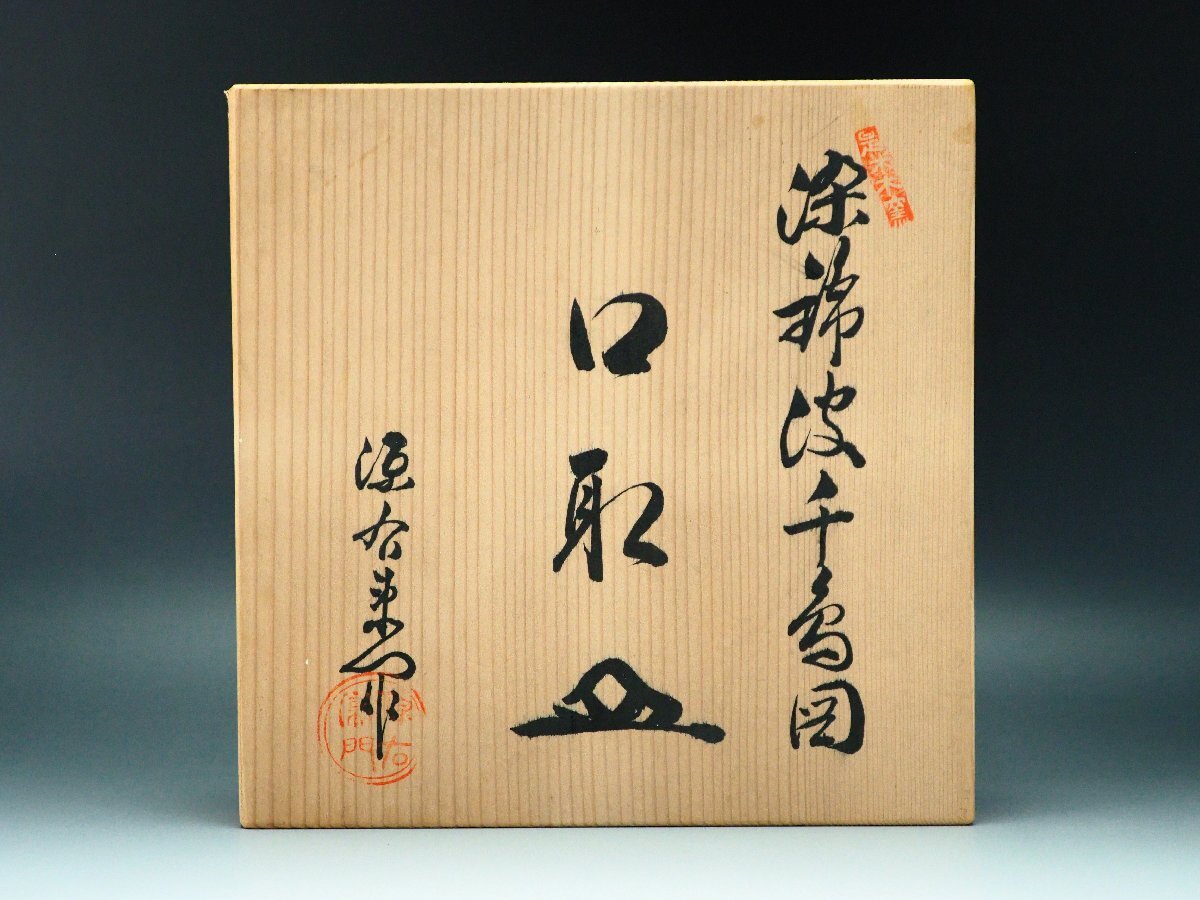 染錦波千鳥図
口取皿
源右衛門作
源右衛門